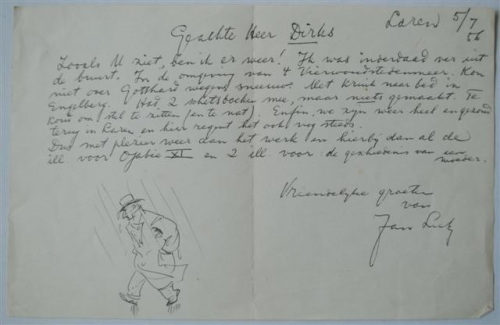 Laren 5/7
56
Geachte Heer Dirks
Zooals U ziet, ben ik er weer! Ik was inderdaad ver uit
de buurt. In de omgeving van 't Vierwoudstedenmeer. Kon
niet over Gotthard wegens sneeuw. Met kruik naar bed in
Engelberg. Had 2 schetsboeken mee, maar niets gemaakt. Te
koud om stil te zitten (en te nat). Enfin, we zijn weer heel en gezond
terug in Laren en hier regent het ook nog steeds.
Dus met plezier weer aan het werk en hierbij dan al de
ill voor XI en 2 ill. voor: de geschiedenis van een
moeder.
Vriendelijke groeten
van
Jan Lutz